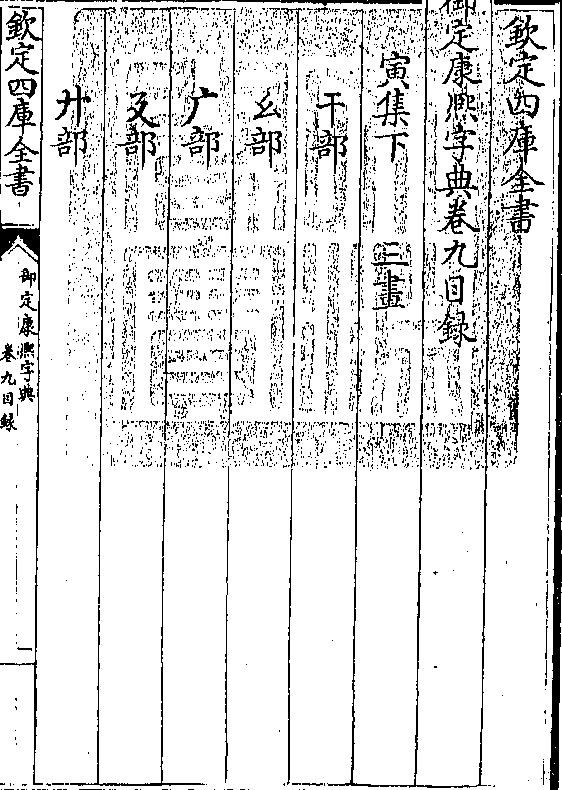 欽定四庫全書
御定康熙字典卷九目録
寅集下 三畫
干部
幺部
广部
廴部
廾部
欽定四庫全書
御定康熙字典
卷九目録
一